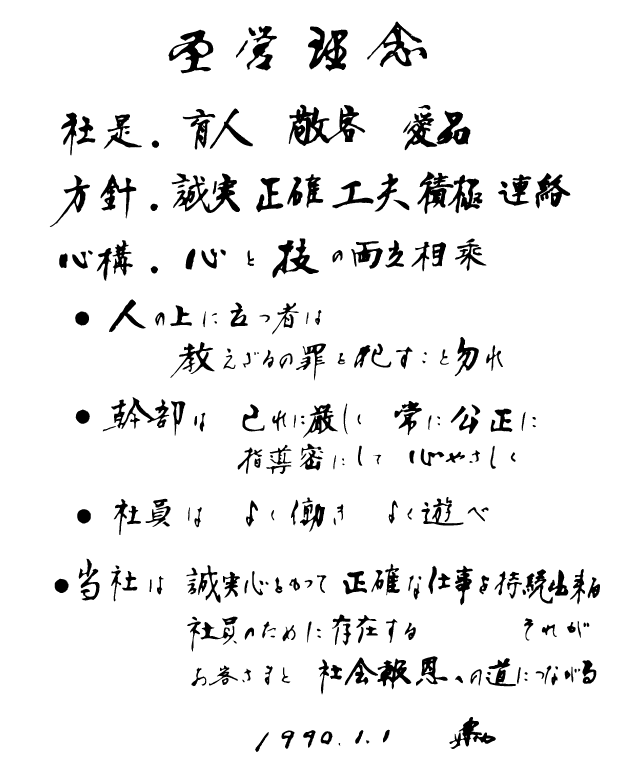 経営理念
社是.育人 敬客 愛品
方針.誠実 正確 工夫 積極 連絡
心構.心と技の両立相乗
●人の上に立つ者は
教えざるの罪を犯すこと勿れ
●幹部は 己れに厳しく 常に公正に
指導密にして 心やさしく
●社員は よく働き よく遊べ
●当社は 誠実心をもって 正確な仕事を持続出来る
社員のために存在する それが
お客さまと 社会報恩への道につながる
1990.1.1